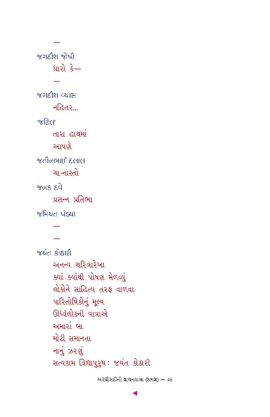 —
જગદીશ જોષી
ધારો કે—
—
જગદીશ વ્યાસ
નહિતર...
જટિલ
તારા હાથમાં
આપણે
જતીનભાઈ દલાલ
ચા-નાસ્તો
જનક દવે
પ્રસન્ન પ્રતિભા
જમિયત પંડ્યા
—
—
જયંત કોઠારી
અનન્ય ચરિત્રારેખા
ક્યાં ક્યાંથી પોષણ મેળવ્યું
લોકોને સાહિત્ય તરફ વાળવા
પારિતોષિકોનું મૂલ્ય
ઊર્ધ્વલોકની યાત્રાએ
અમારાં બા
મોટી સમાનતા
નાનું ઝરણું
સત્યકામ વિદ્યાપુરુષ : જયંત કોઠારી